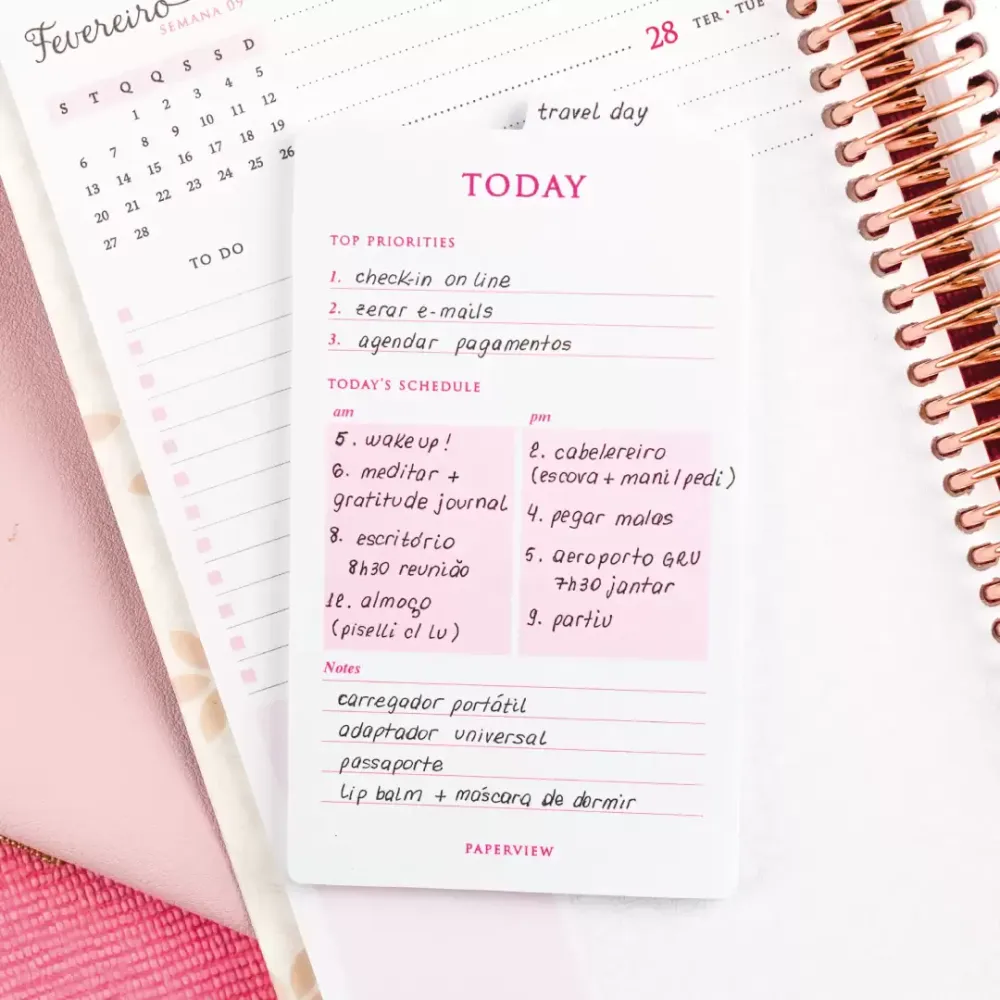 Fevereiro
SEMANA 09
S T Q Q S S D
1 2 3 4 5
6 7 8 9 10 11 12
13 14 15 16 17 18 19
20 21 22 23 24 25 26
27 28
TO DO
28 TER • TUE
travel day
TODAY
TOP PRIORITIES
1. check-in on line
2. zerar e-mails
3. agendar pagamentos
TODAY'S SCHEDULE
am
5. wake up!
6. meditar +
gratitude journal
8. escritório
8h30 reunião
12. almoço
(piselli c/ Lu)
pm
2. cabelereiro
(escova + mani/pedi)
4. pegar malas
5. aeroporto GRU
7h30 jantar
9. partiu
Notes
carregador portátil
adaptador universal
passaporte
Lip balm + máscara de dormir
PAPERVIEW